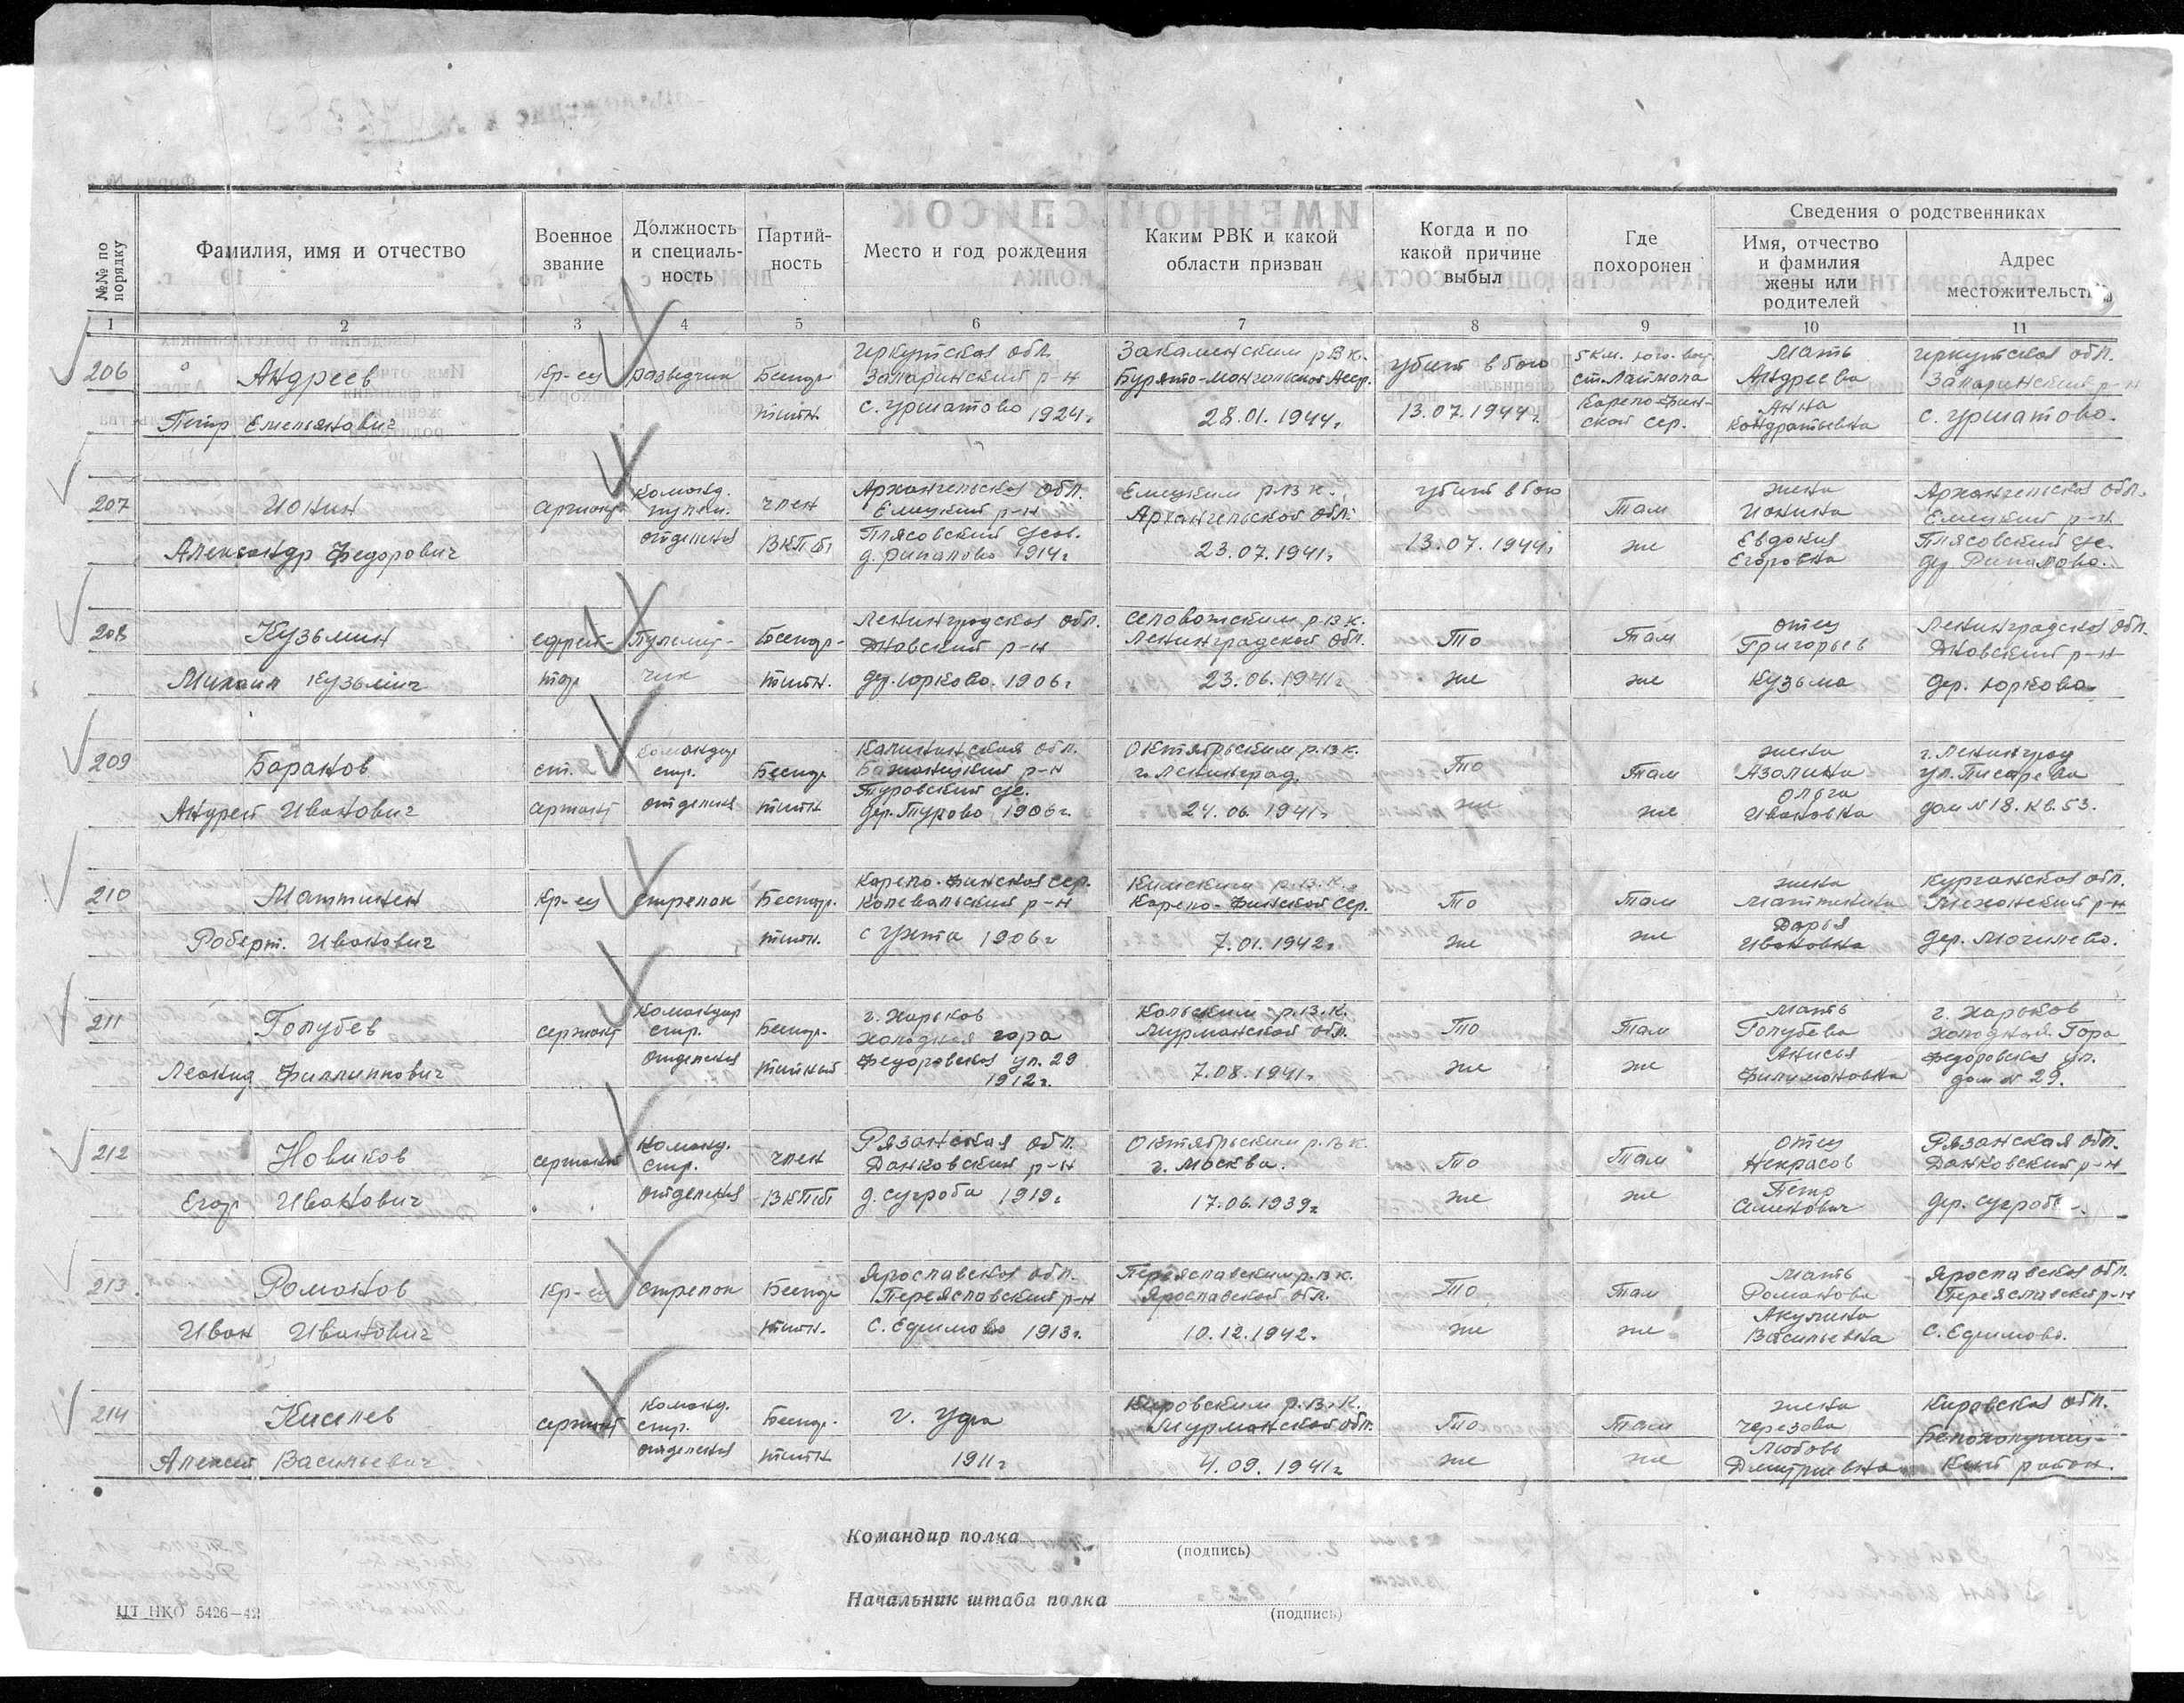 №№ по порядку
Фамилия, имя и отчество
Военное звание
Должность и специаль-ность
Партий-ность
Место и год рождения
Каким РВК и какой области призван
Когда и по какой причине выбыл
Где похоронен
Сведения о родственниках
Имя, отчество и фамилия жены или родителей
Адрес местожительств
1 2 3 4 5 6 7 8 9 10 11
206 Андреев
Петр Емельянович
Кр-ец
разведчик
Беспар
тийн
Иркутская обл.
Заларинский р-н
с. Уршатово 1924г.
Закаменским р.в.к.
Бурято-Монгольской Асср.
28.01.1944г.
убит в бою
13.07.1944г.
5 км. юго-вос.
ст. Лаймола
Карело-Фин-
ской сср.
Мать
Андреева
Анна
Кондратьевна
Иркутская обл.
Заларинский р-н
с. Уршатово.
207 Ионин
Александр Федорович
сержант
Команд.
пулем.
отделения
член
ВКП(б)
Архангельская обл.
Емецкий р-н
1914г
Емецким р.в.к.
Архангельской обл.
23.07.1941г.
убит в бою
13.07.1944г.
Там
же
жена
Ионина
Евдокия
Егоровна
Архангельская обл.
Емецкий р-н
208 Кузьмин
Михаил Кузьмич
ефрей-
тор
Пулемет-
чик
Беспар-
тийн.
Ленинградская обл.
Дновский р-н
дер. Юрково. 1906г
р.в.к.
Ленинградской обл.
23.06.1941г
То
же
Там
же
отец
Григорьев
Кузьма
Ленинградская обл.
Дновский р-н
дер. Юрково.
209 Баранов
Андрей Иванович
ст.
сержант
Командир
стр.
отделения
Беспар
тийн
Калининская обл.
р-н
дер. Турово 1906г.
Октябрьским р.в.к.
г. Ленинград.
24.06.1941г
То
же
Там
же
жена
Азалина
Ольга
Ивановна
г. Ленинград
ул. Писарева
дом N 18. кв. 53.
210 Маттинен
Роберт. Иванович
Кр-ец
Стрелок
Беспар.
тийн.
Карело-Финская сср.
Калевальский р-н
с Ухта 1906г
р.в.к.
Карело-Финской сср.
7.01.1942г
То
же
Там
же
жена
Маттинина
Дарья
Ивановна
Курганская обл.
р-н
дер. Могилево.
211 Голубев
Леонид Филлиппович
сержант
Командир
стр.
отделения
Беспар.
тийный
г. Харьков
холодная гора
Федоровская ул. 29
1912г.
Кольским р.в.к.
Мурманской обл.
7.08.1941г
То
же
Там
же
Мать
Голубева
Анисья
Филимоновна
г. Харьков
холодная Гора
Федоровская ул.
дом N 29.
212 Новиков
Егор Иванович
сержант
Команд.
стр.
отделения
член
ВКП(б)
Рязанская обл.
Данковский р-н
д. Сугробы 1919г
Октябрьским р.в.к.
г. Москва.
17.06.1939г
То
же
Там
же
отец
Некрасов
Рязанская обл.
Данковский р-н
213. Романов
Иван Иванович
Кр-ец
Стрелок
Беспар
тийн.
Ярославская обл.
Переяславский р-н
с. Едимово 1913г.
Переяславским р.в.к.
Ярославской обл.
10.12.1942.
То
же
Там
же
Мать
Романова
Акулина
Васильевна
Ярославская обл.
Переяславский р-н
с. Едимово.
214 Киселев
Алексей Васильевич
сержант
Команд.
стр.
отделения
Беспар.
тийн
г. Уфа
1911г
Кировским р.в.к.
Мурманской обл.
4.09.1941г
То
же
Там
же
жена
Черезова
Любовь
Дмитриевна
Кировская обл.
Белохолуниц-
кий район.
Командир полка
(подпись)
Начальник штаба полка
(подпись)
ЦТ НКО 5426—42